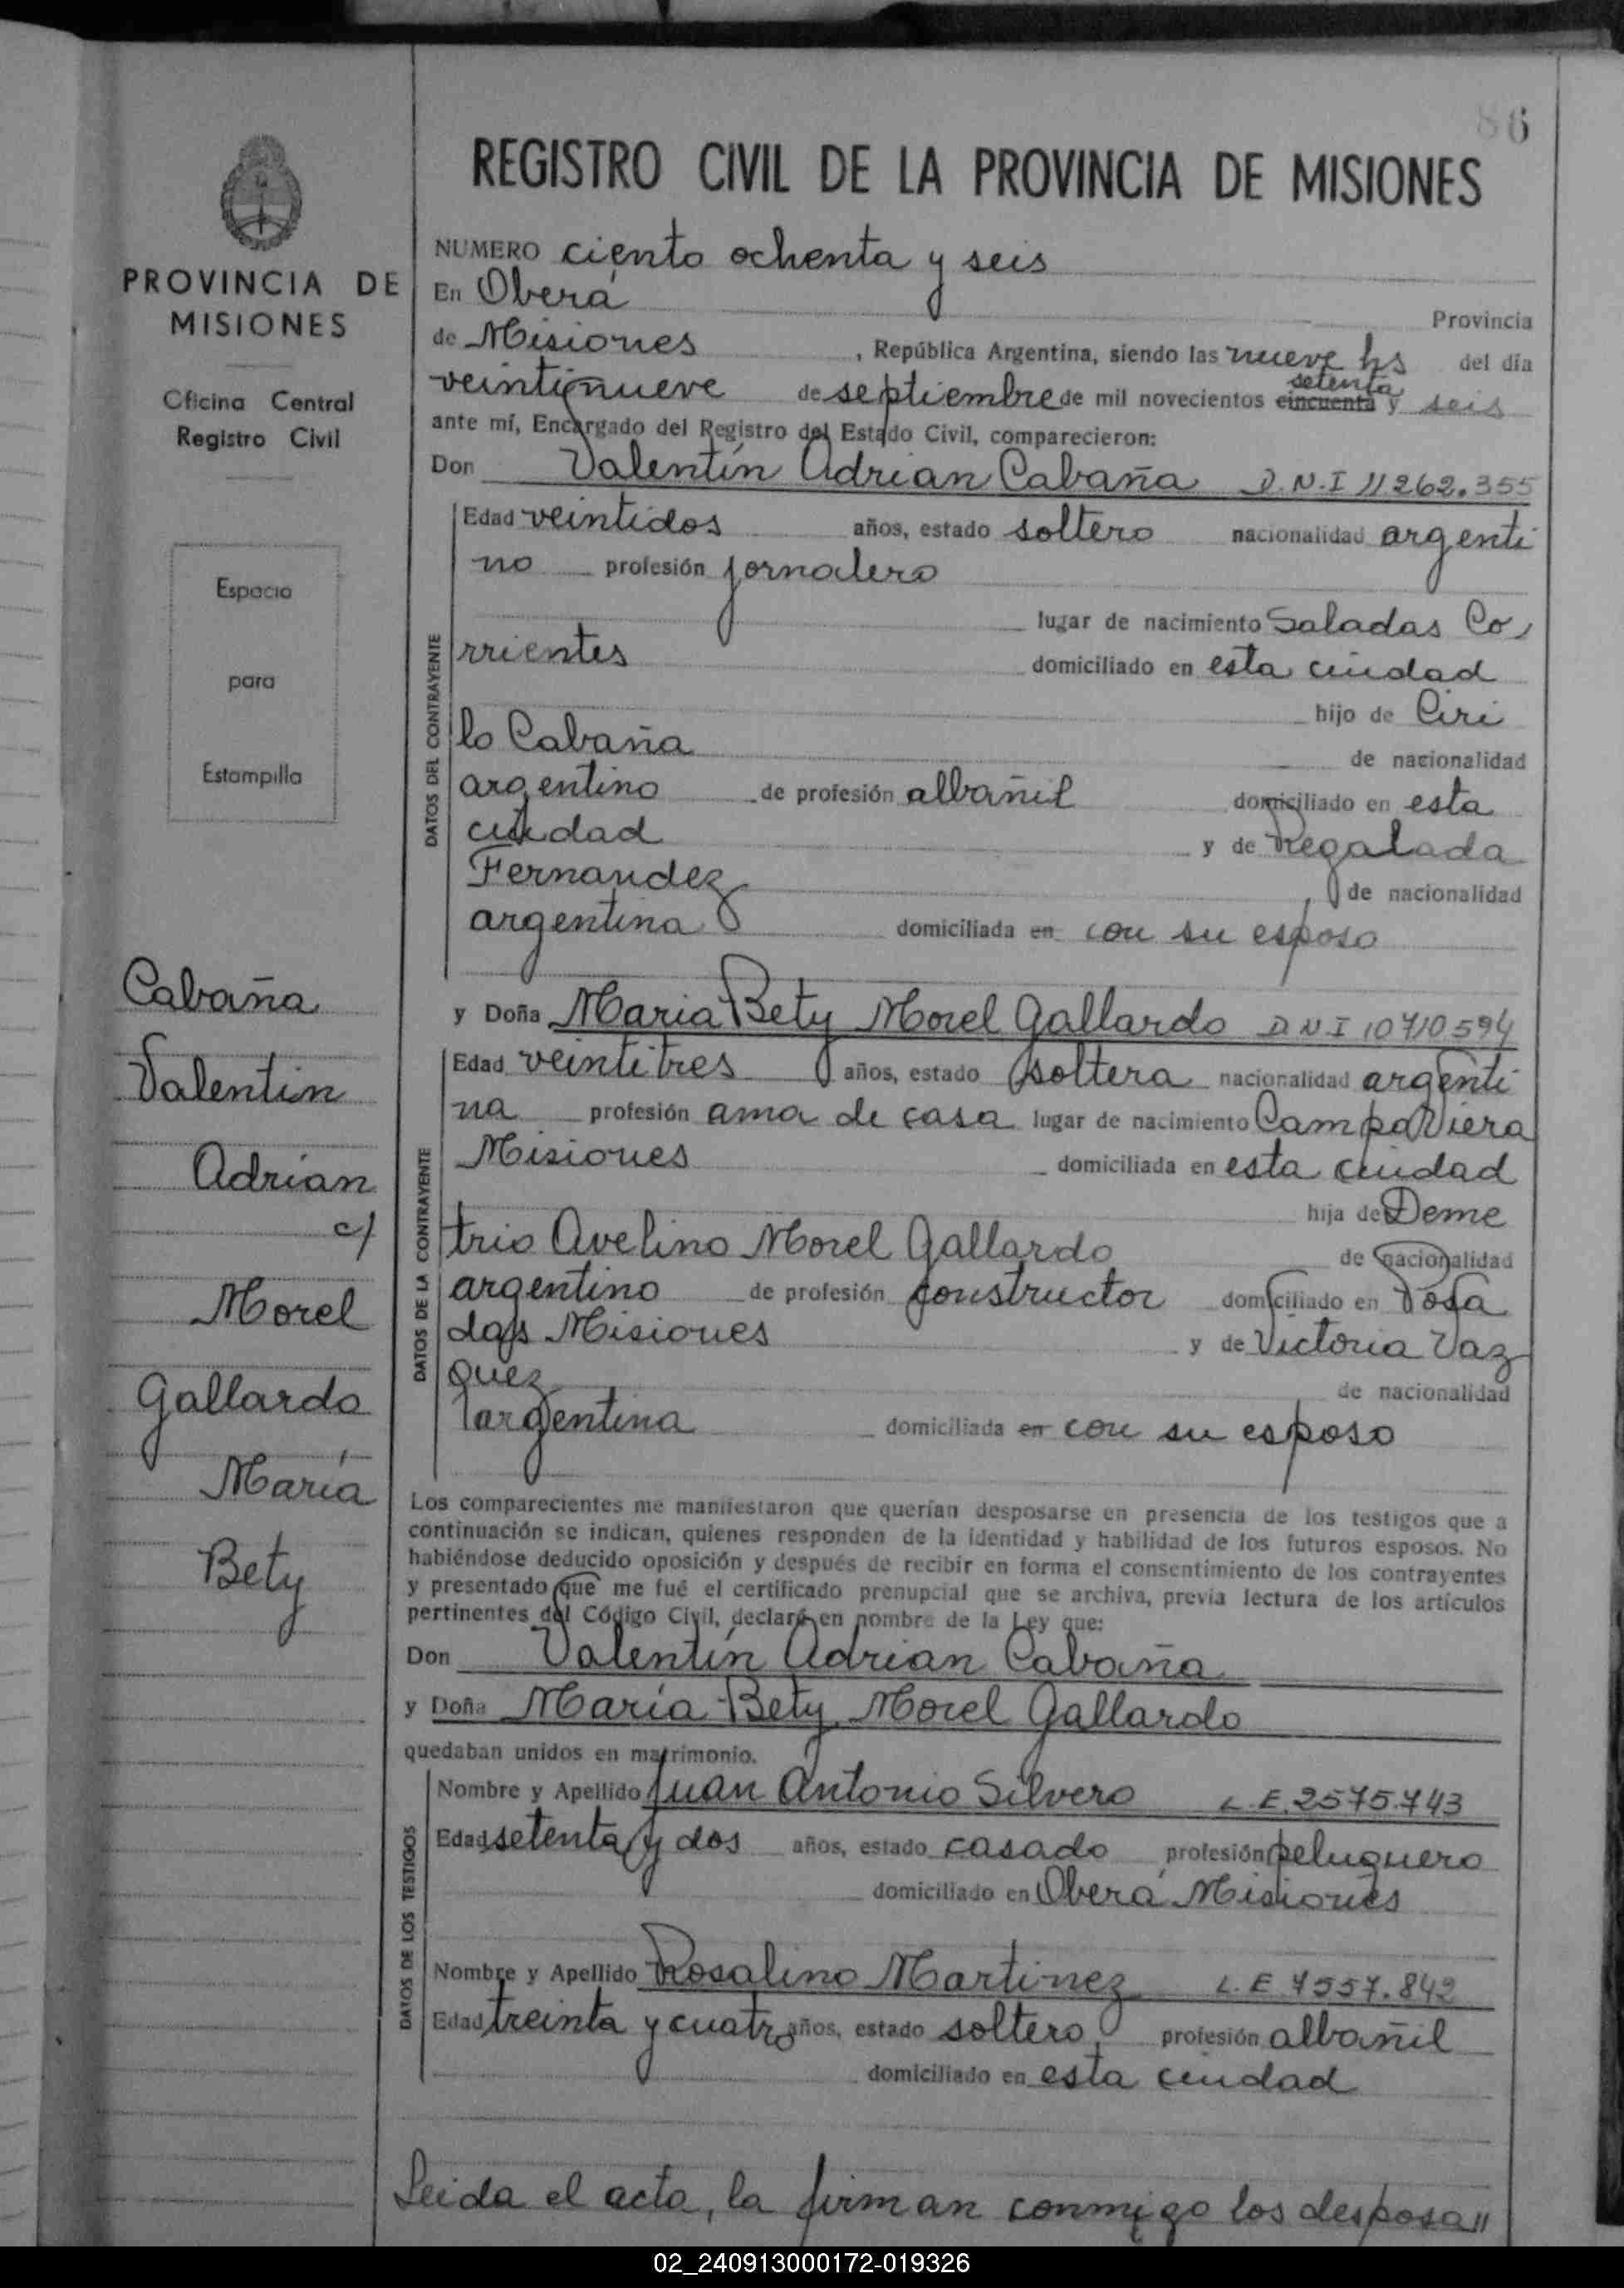 86
REGISTRO CIVIL DE LA PROVINCIA DE MISIONES
PROVINCIA DE
MISIONES
Oficina Central
Registro Civil
Espacio
para
Estampilla
Cabaña
Valentin
Adrián
c/
Morel
Gallardo
María
Bety
NUMERO ciento ochenta y seis
En Oberá Provincia
de Misiones , República Argentina, siendo las nueve hs del día
setenta
veintinueve de septiembre de mil novecientos cincuenta y seis
ante mí, Encargado del Registro del Estado Civil, comparecieron:
Don Valentín Adrian Cabaña D.N.I 11262.355
DATOS DEL CONTRAYENTE
Edad veintidos años, estado soltero nacionalidad argenti
no profesión jornalero
lugar de nacimiento Saladas Co
rrientes domiciliado en esta ciudad
hijo de Ciri
lo Cabaña de nacionalidad
argentino de profesión albañil domiciliado en esta
ciudad y de Regalada
Fernandez de nacionalidad
argentina domiciliada en con su esposo
y Doña Maria Bety Morel Gallardo D N I 10710594
DATOS DE LA CONTRAYENTE
Edad veintitres años, estado soltera nacionalidad argenti
na profesión ama de casa lugar de nacimiento Campo Viera
Misiones domiciliada en esta ciudad
hija de Deme
trio Avelino Morel Gallardo de nacionalidad
argentino de profesión constructor domiciliado en Posa
das Misiones y de Victoria Vaz
quez de nacionalidad
argentina domiciliada en con su esposo
Los comparecientes me manifestaron que querían desposarse en presencia de los testigos que a
continuación se indican, quienes responden de la identidad y habilidad de los futuros esposos. No
habiéndose deducido oposición y después de recibir en forma el consentimiento de los contrayentes
y presentado que me fué el certificado prenupcial que se archiva, previa lectura de los artículos
pertinentes del Código Civil, declaré en nombre de la Ley que:
Don Valentín Adrian Cabaña
y Doña María Bety Morel Gallardo
quedaban unidos en matrimonio.
DATOS DE LOS TESTIGOS
Nombre y Apellido Juan Antonio Silvero L.E. 2575.743
Edad setenta y dos años, estado casado profesión peluquero
domiciliado en Oberá Misiones
Nombre y Apellido Rosalino Martinez L.E 7557.842
Edad treinta y cuatro años, estado soltero profesión albañil
domiciliado en esta ciudad
Leida el acta, la firman conmigo los desposa"
02_240913000172-019326